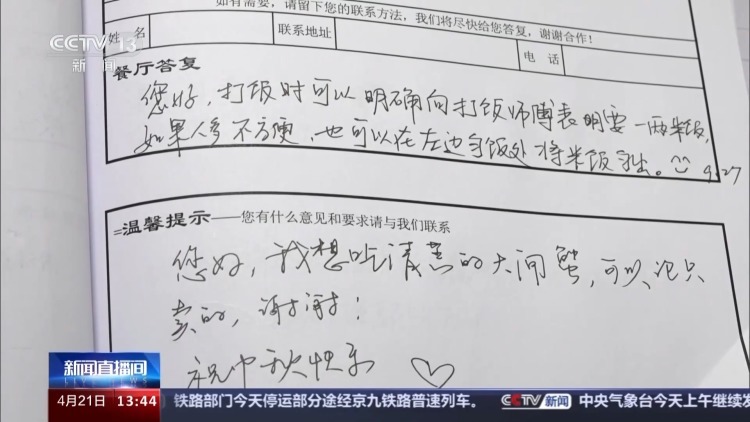 CCTV 13
新闻
如有需要，请留下您的联系方法，我们将尽快给您答复，谢谢合作！
姓 名
联系地址
电 话
餐厅答复
您好，打饭时可以明确向打饭师傅表明要一两米饭，
如果人多不方便，也可以在左边匀饭处将米饭匀出。
9.27
=温馨提示——您有什么意见和要求请与我们联系
您好，我想吃清蒸的大闸蟹，可以论只
卖的，谢谢！
祝中秋快乐
新闻直播间
4月21日 13:44
铁路部门今天停运部分途经京九铁路普速列车。 CCTV 新闻 中央气象台今天上午继续发